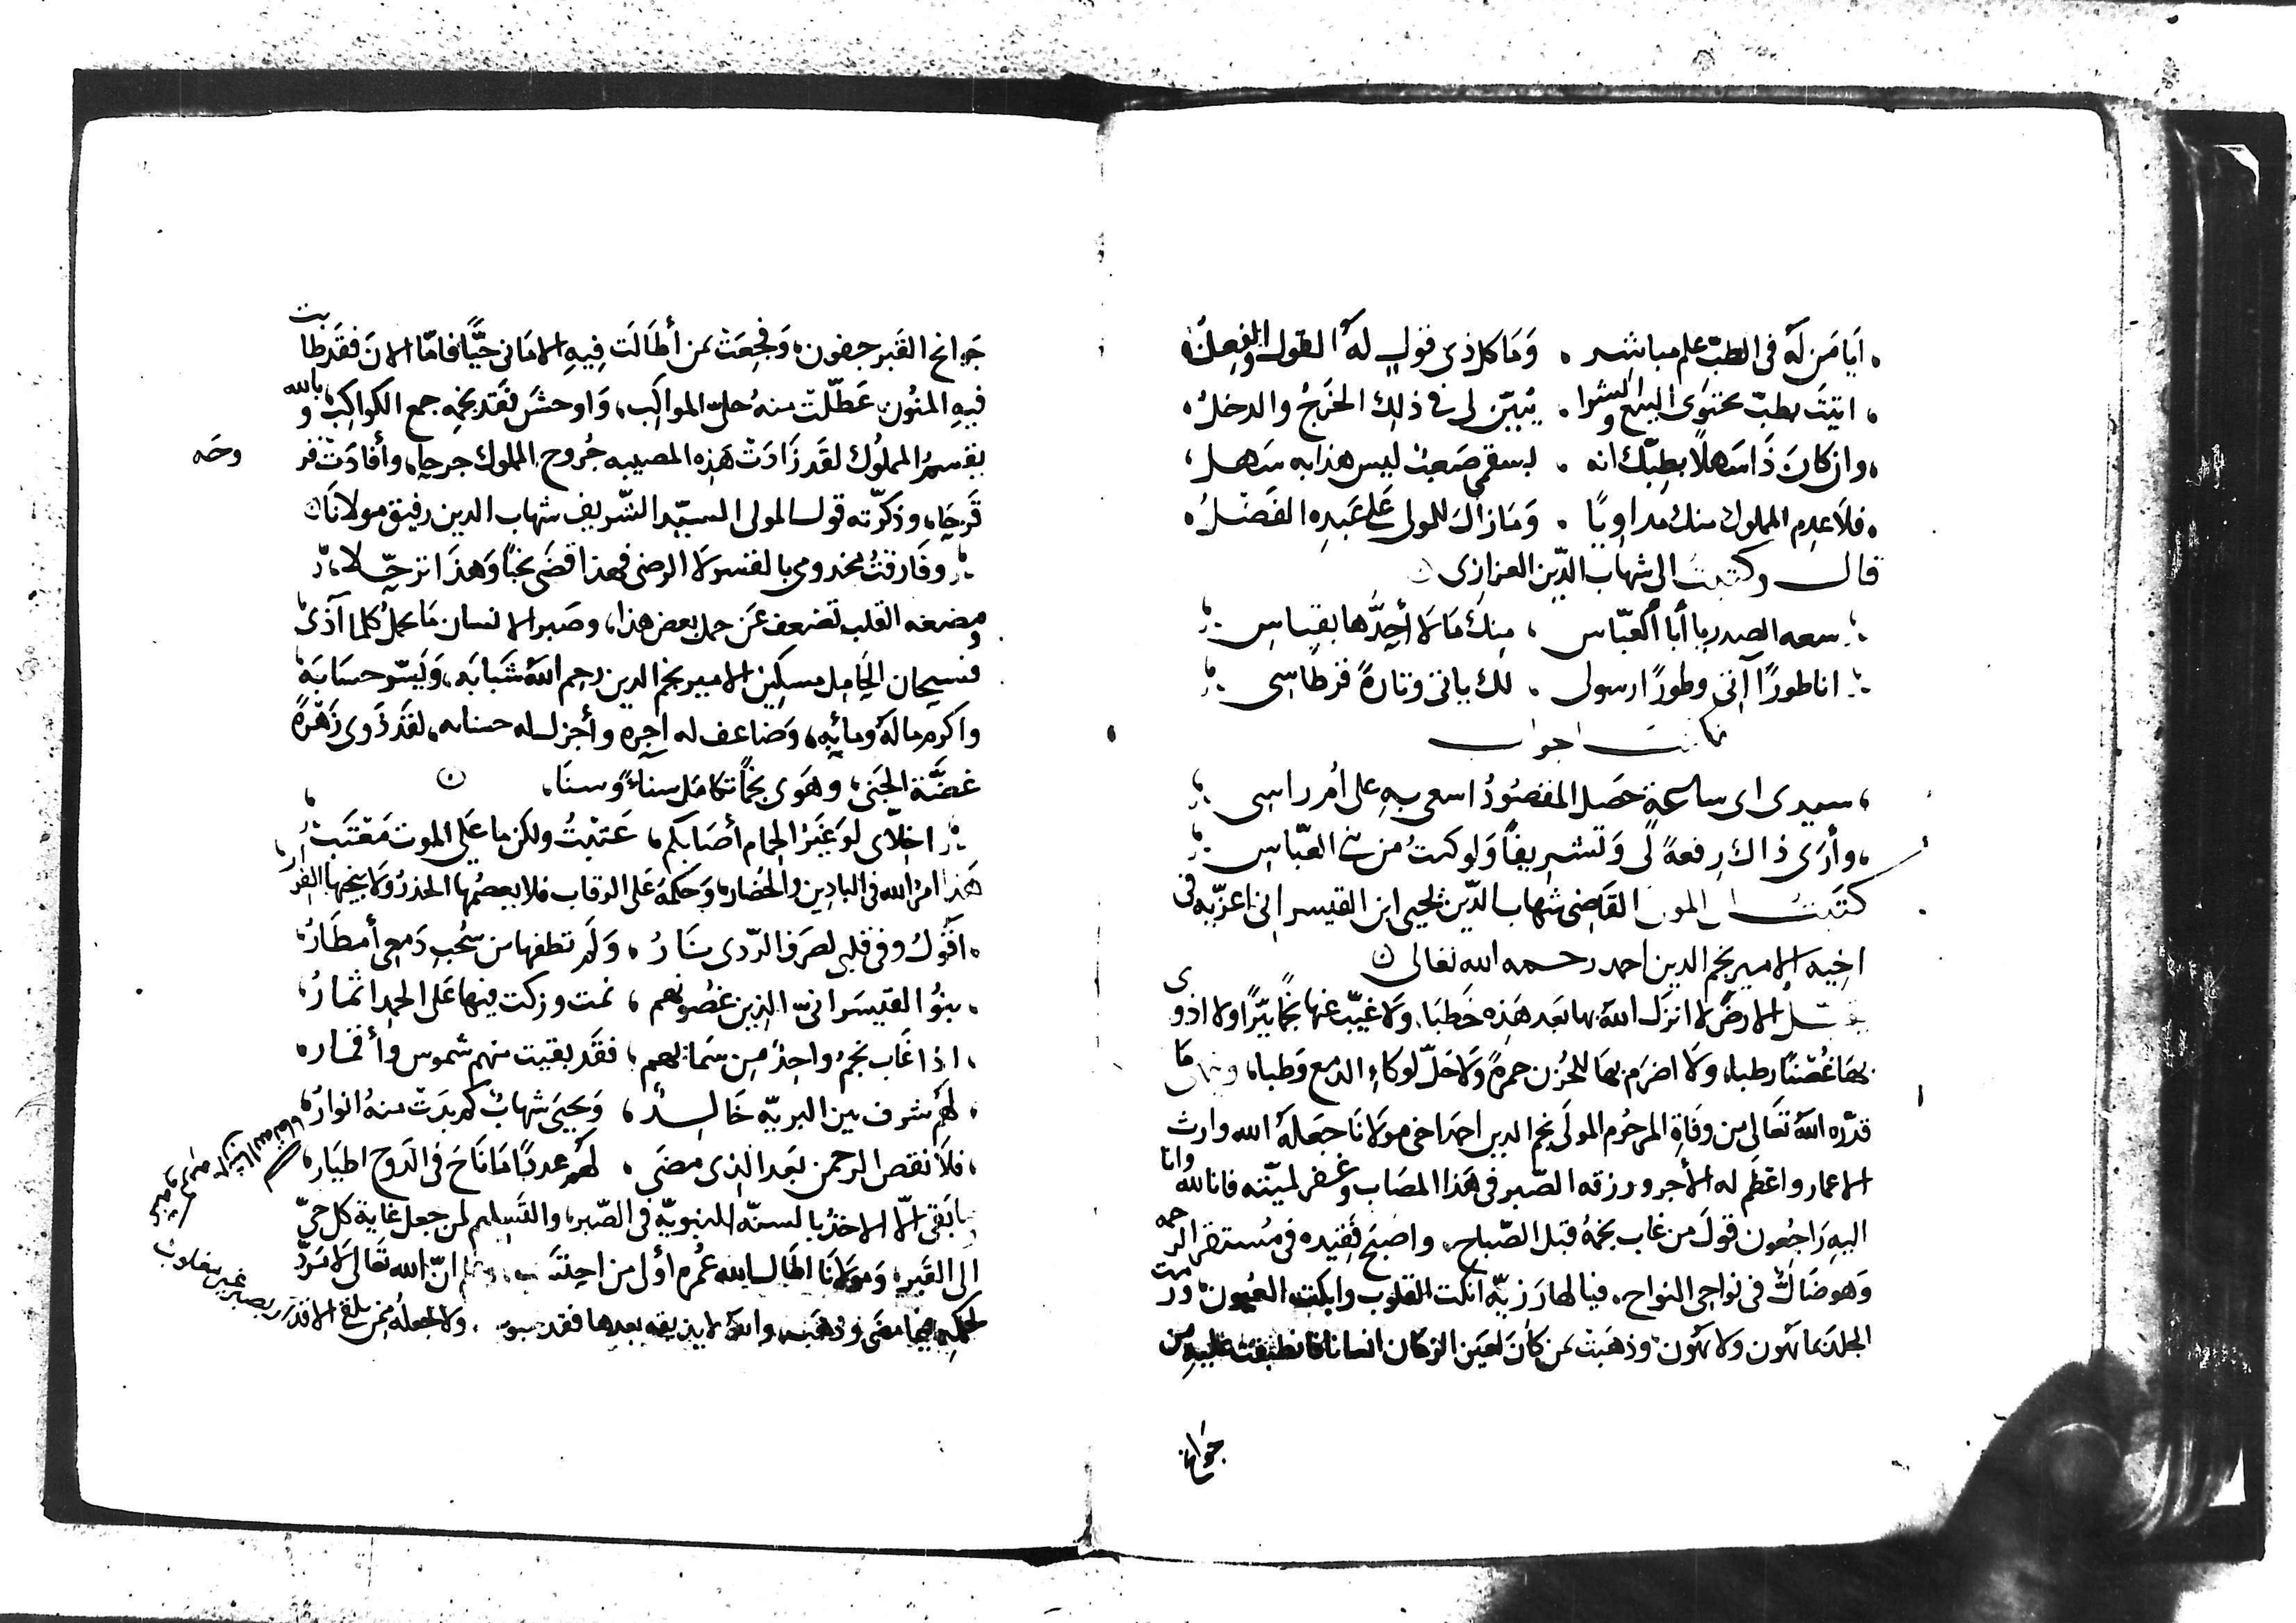 أيا من له في الطب علم مباشر . وما كل ذي قول له القول والفعل
اتيت بطب محتوى البيع والشرا . يبين لي في ذلك الخرج والدخل
وان كان ذا سهلا بطبك انه . لسقمي صعب ليس هذا به سهل
فلا عدم المملوك منك مداويا . وما زال للمولى على عبده الفضل
قال وكتبت الى شهاب الدين العزازي
سعه الصدر يا أبا العباس ، منك ما لا أحدها بقياس
انا طورا آتي وطورا رسولي . لك ياتي وتارة قرطاسي
فكتب اجواب
سيدي اى ساعة حصل المقصود اسعى به على أم راسي
وأرى ذاك رفعة لي وتشريفا ولو كنت من بني العباس
كتبت الى المولى القاضي شهاب الدين يحيى ابن القيسراني اعزيه في
اخيه الامير نجم الدين احمد رحمه الله تعالى
يقبل الارض لا انزل الله بها بعد هذه خطبا، ولا غيب عنها نجما نيرا ولا اذوى
بها غصنا رطبا، ولا اضرم بها للحزن جمرة ولا حل لوكاء الدمع وطبا، وينهى ما
قدره الله تعالى من وفاة المرحوم المولى نجم الدين احمد اخي مولانا جعله الله وارث
الاعمار واعظم له الأجر ورزقه الصبر في هذا المصاب وغفر لميته فانا لله وانا
اليه راجعون قول من غاب نجمه قبل الصباح، واصبح فقيده في مستقر الرحمة
وهو ضال في نواحي النواح، فيا لها رزية انكت القلوب وابكت العيون ورمت
الجلد بما يهون ولا يهون وذهبت بمن كان لعين الزمان انسانا فانطبقت عليه من
جوانح
جوانح القبر جفون، وفجعت بمن أطالت فيه الاماني حيا فاما الان فقد طابت
فيه المنون، عطلت منه حلى المواكب، واوحش فقد نجمه جمع الكواكب، وبالله
يقسم المملوك لقد زادت هذه المصيبه جروح المملوك جرحا، وأفادت قر وحه
قرحا، وذكرته قول المولى السيد الشريف شهاب الدين رفيق مولانا
وفارقت مخدومي بالفسر لا الرضى فهذا قضى نحبا وهذا ترحلا
ومضغه القلب تضعف عن حمل بعض هذا، وصبر الانسان ما يحمل كلما آذى
فسبحان الحامل مسكين الامير نجم الدين رحم الله شبابه، ويسر حسابه
واكرم ماله ومآبه، وضاعف له اجره وأجزل له حسناته، لقد ذوى زهرة
غضة الجنى، وهوى نجما تكامل سناء وسنا،
اخلاى لو غير الحمام أصابكم ، عتبت ولكن ما على الموت معتب
هذا امر الله في البادين والحضار، وحكمه على الرقاب فلا يعصمها الحذر ولا ينجيها الفرار
اقول وفي قلبي لصرف الردى نار ، ولم تطفها من سحب دمعي أمطار
بنو القيسراني الذين غصونهم ، نمت وزكت فيها على الحمد اثمار
اذا غاب نجم واحد من سمائهم ، فقد بقيت منهم شموس وأقمار
لهم شرف بين البرية خالد ، ويحيى شهاب كم بدت منه انوار
فلا نقص الرحمن بعد الذي مضى ، لهم عددا ما ناح في الدوح اطيار
ما بقى الا الاخذ بالسنة النبوية في الصبر، والتسليم لمن جعل غاية كل حي
الى القبر، ومولانا اطال الله عمره أولى من احتسب، وعلم ان الله تعالى لا مرد
لحكمه فيما مضى وذهب، والله لا يذيقه بعدها فقد محبوب، ولا يجعله ممن يلقى الاقدار بصبر غير مغلوب